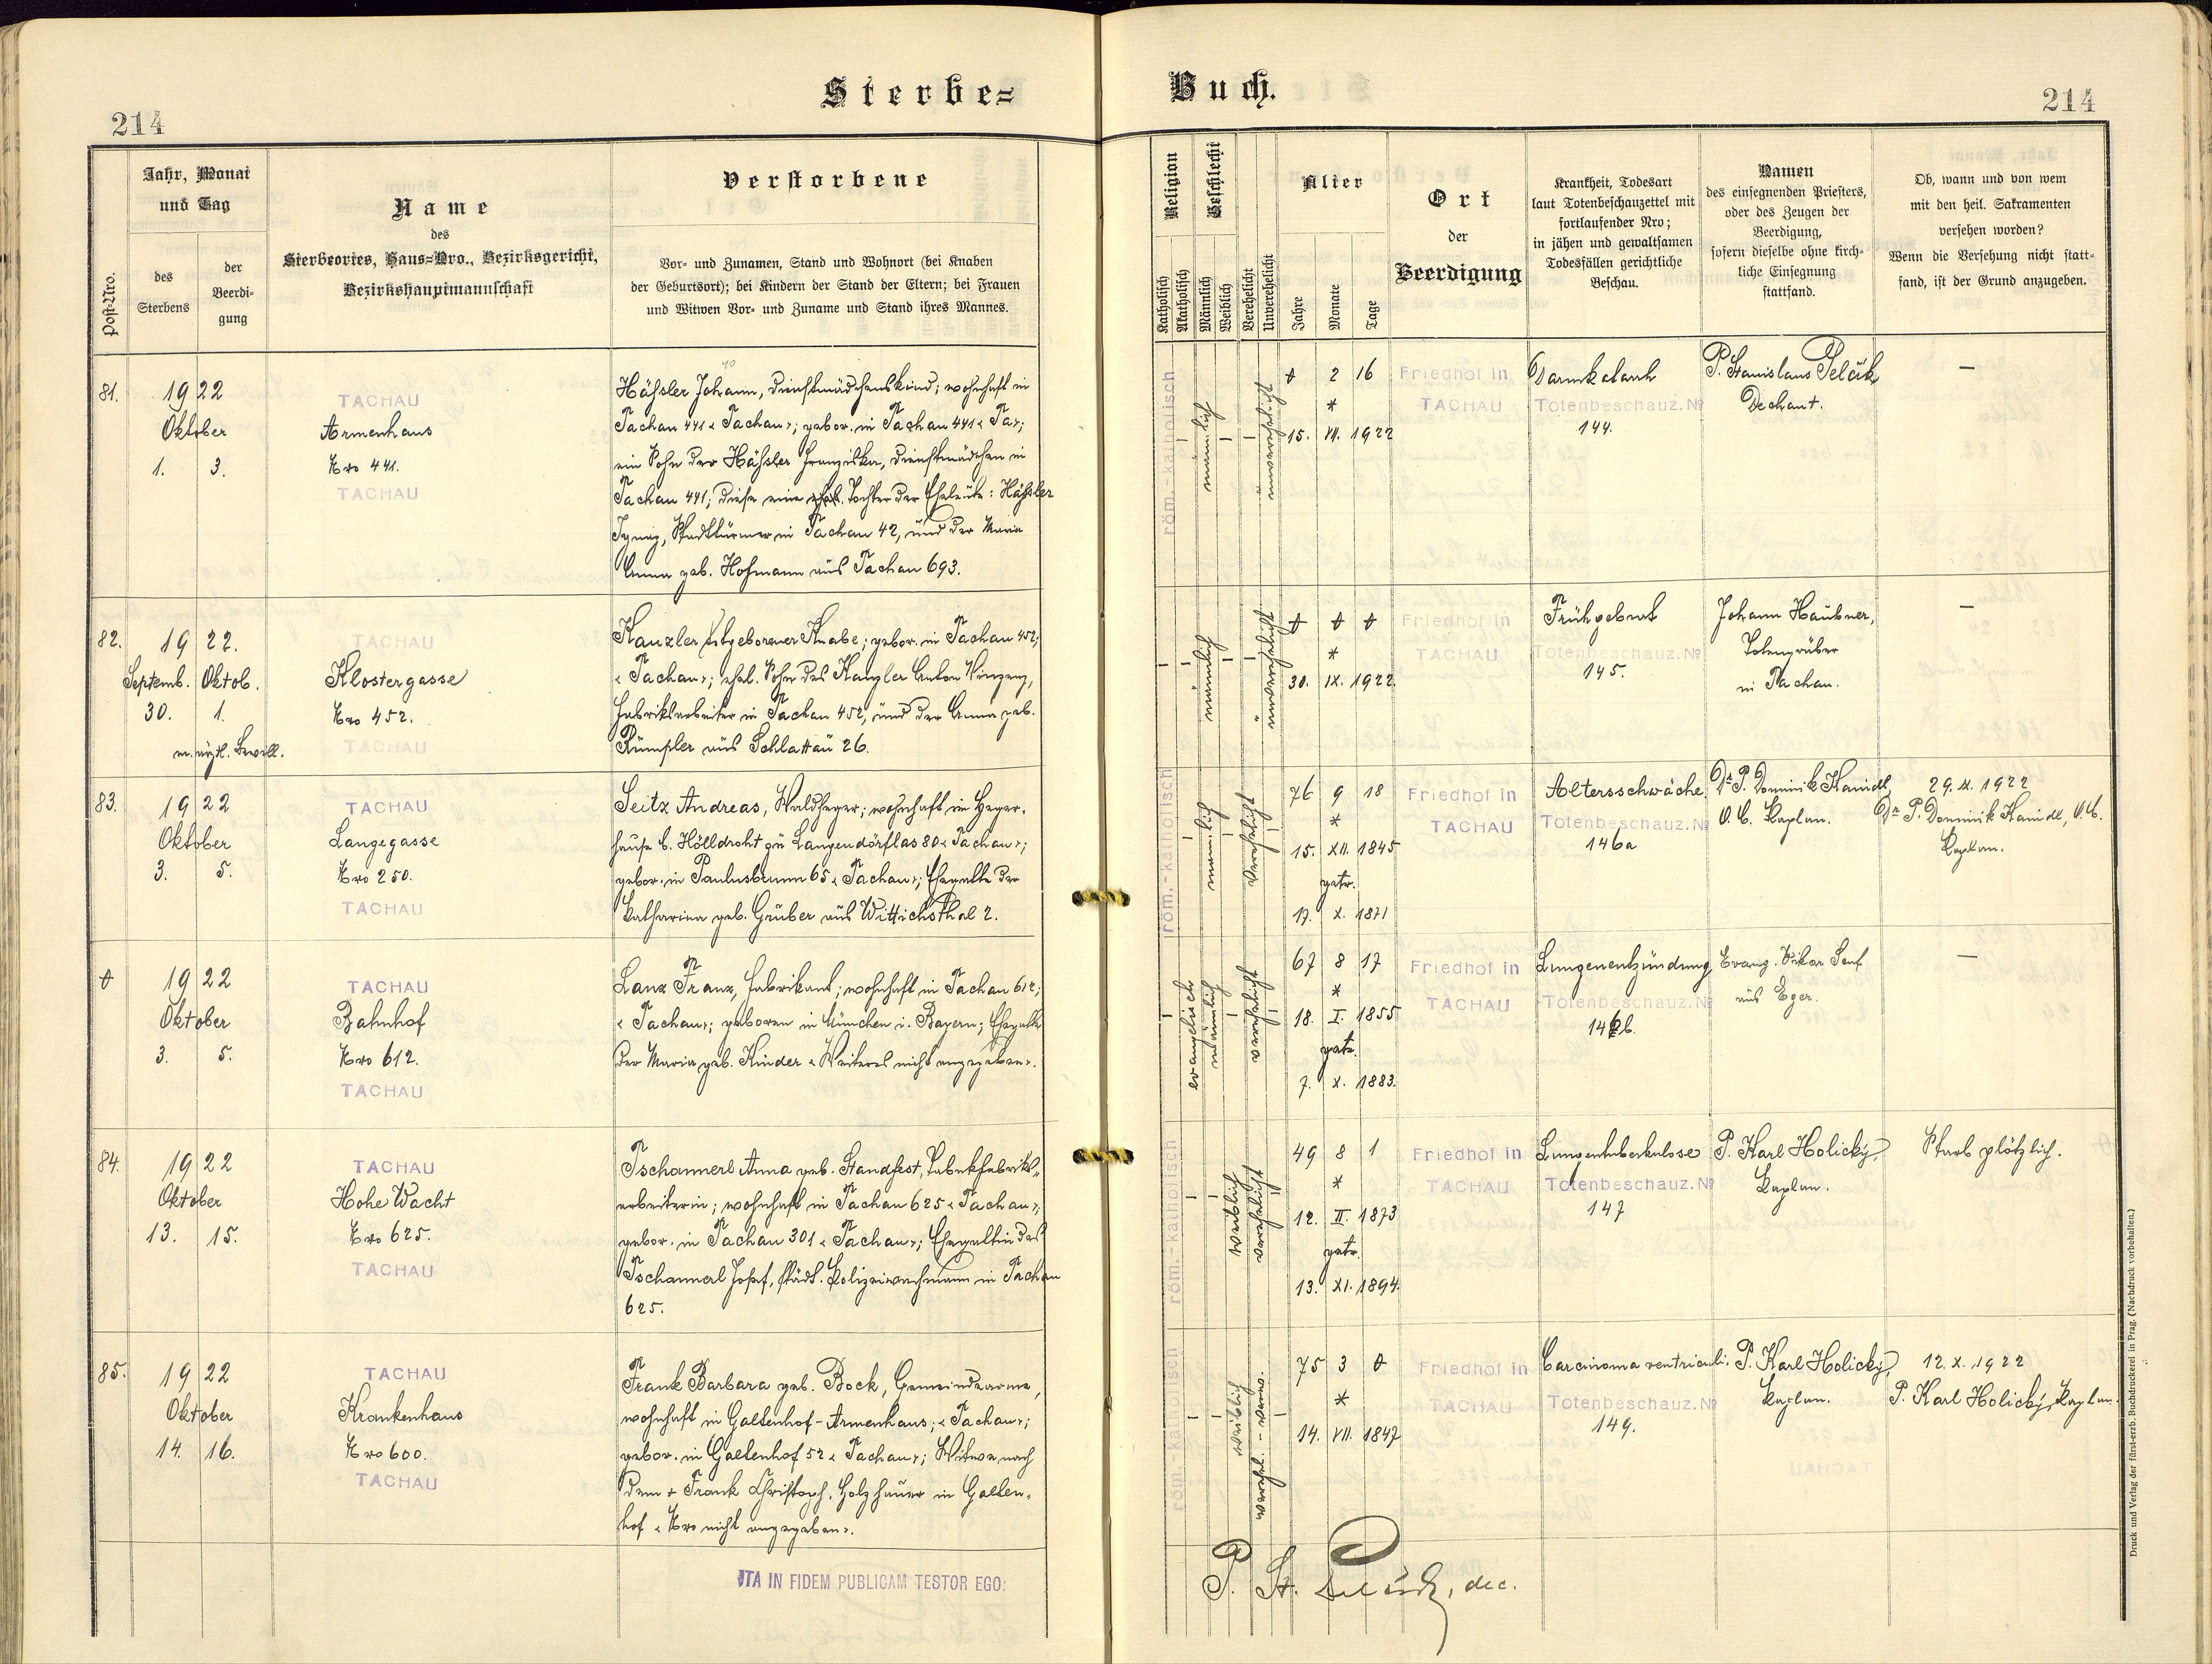 Sterbe=
Buch.
214
214
Post-Nro.
Jahr, Monat
und Tag
des
Sterbens
der
Beerdi-
gung
Name
des
Sterbeortes, Haus=Nro., Bezirksgericht,
Bezirkshauptmannschaft
Verstorbene
Vor- und Zunamen, Stand und Wohnort (bei Knaben
der Geburtsort); bei Kindern der Stand der Eltern; bei Frauen
und Witwen Vor- und Zuname und Stand ihres Mannes.
Religion
Katholisch
Akatholisch
Geschlecht
Männlich
Weiblich
Verehelicht
Unverehelicht
Alter
Jahre
Monate
Tage
Ort
der
Beerdigung
Krankheit, Todesart
laut Totenbeschauzettel mit
fortlaufender Nro;
in jähen und gewaltsamen
Todesfällen gerichtliche
Beschau.
Namen
des einsegnenden Priesters,
oder des Zeugen der
Beerdigung,
sofern dieselbe ohne kirch-
liche Einsegnung
stattfand.
Ob, wann und von wem
mit den heil. Sakramenten
versehen worden?
Wenn die Versehung nicht statt-
fand, ist der Grund anzugeben.
81.
1922
Oktober
1. 3.
TACHAU
Armenhaus
Nro 441.
TACHAU
Häßler Johann, Dienstmädchenskind; wohnhaft in
Tachau 441 "Tachau"; gebor. in Tachau 441 "Ta";
ein Sohn der Häßler Franziska, Dienstmädchen in
Tachau 441; diese eine ehel. Tochter der Eheleute: Häßler
Ignaz, Stadttürmer in Tachau 42, und der Maria
Anna geb. Hofmann aus Tachau 693.
röm.-katholisch
männlich
unverehelicht
0 2 16
*
15. VII. 1922
Friedhof in
TACHAU
Darmkatarrh
Totenbeschauz. No
144.
P. Stanislaus Pelčik
Dechant.
—
82.
1922.
Septemb. Oktob.
30. 1.
m. ärztl. Bewill.
TACHAU
Klostergasse
Nro 452.
TACHAU
Kanzler totgeborener Knabe; gebor. in Tachau 452;
"Tachau"; ehel. Sohn des Kanzler Anton Vinzenz,
Fabriksarbeiter in Tachau 452, und der Anna geb.
Rümpler aus Schlattau 26.
männlich
unverehelicht
0 0 0
*
30. IX. 1922.
Friedhof in
TACHAU
Frühgeburt
Totenbeschauz. No
145.
Johann Haubner,
Totengräber
in Tachau.
—
83.
1922
Oktober
3. 5.
TACHAU
Langegasse
Nro 250.
TACHAU
Seitz Andreas, Waldheger; wohnhaft im Heger-
hause b. Hölldroht zu Langendörflas 80 "Tachau";
gebor. in Paulusbrunn 65 "Tachau"; Ehegatte der
Katharina geb. Gruber aus Wittichsthal 2.
röm.-katholisch
männlich
verehelicht
76 9 18
*
15. XII. 1845
getr.
17. X. 1871
Friedhof in
TACHAU
Altersschwäche
Totenbeschauz. No
146a
Dr P. Dominik Kaindl,
Kaplan.
29. IX. 1922
Dr P. Dominik Kaindl,
Kaplan.
0
1922
Oktober
3. 5.
TACHAU
Bahnhof
Nro 612.
TACHAU
Lanz Franz, Fabrikant; wohnhaft in Tachau 612;
"Tachau"; geboren in München i. Bayern; Ehegatte
der Maria geb. Kinder "Weiteres nicht angegeben".
evangelisch
männlich
verehelicht
67 8 17
*
18. I. 1855
getr.
7. X. 1883.
Friedhof in
TACHAU
Lungenentzündung
Totenbeschauz. No
146b.
Evang. Vikar Senf
aus Eger.
—
84.
1922
Oktober
13. 15.
TACHAU
Hohe Wacht
Nro 625.
TACHAU
Tschannerl Anna geb. Standfest, Tabakfabriks-
arbeiterin; wohnhaft in Tachau 625 "Tachau";
gebor. in Tachau 301 "Tachau"; Ehegattin des
Tschannerl Josef, städt. Polizeiwachmann in Tachau
625.
röm.-katholisch
weiblich
verehelicht
49 8 1
*
12. II. 1873
getr.
13. XI. 1894.
Friedhof in
TACHAU
Lungentuberkulose
Totenbeschauz. No
147
P. Karl Holický,
Kaplan.
Starb plötzlich.
85.
1922
Oktober
14. 16.
TACHAU
Krankenhaus
Nro 600.
TACHAU
Frank Barbara geb. Bock, Gemeindearme,
wohnhaft in Galtenhof-Armenhaus; "Tachau";
gebor. in Galtenhof 52 "Tachau"; Witwe nach
dem + Frank Christoph, Holzhauer in Galten-
hof "Nro nicht angegeben".
röm.-katholisch
weiblich
verehel. - verw.
75 3 0
*
14. VII. 1847
Friedhof in
TACHAU
Carcinoma ventriculi.
Totenbeschauz. No
149.
P. Karl Holický,
Kaplan.
12. X. 1922
P. Karl Holický, Kaplan.
ITA IN FIDEM PUBLICAM TESTOR EGO:
P. St. Pelčik, dec.
Druck und Verlag der fürst-erzb. Buchdruckerei in Prag. (Nachdruck vorbehalten.)